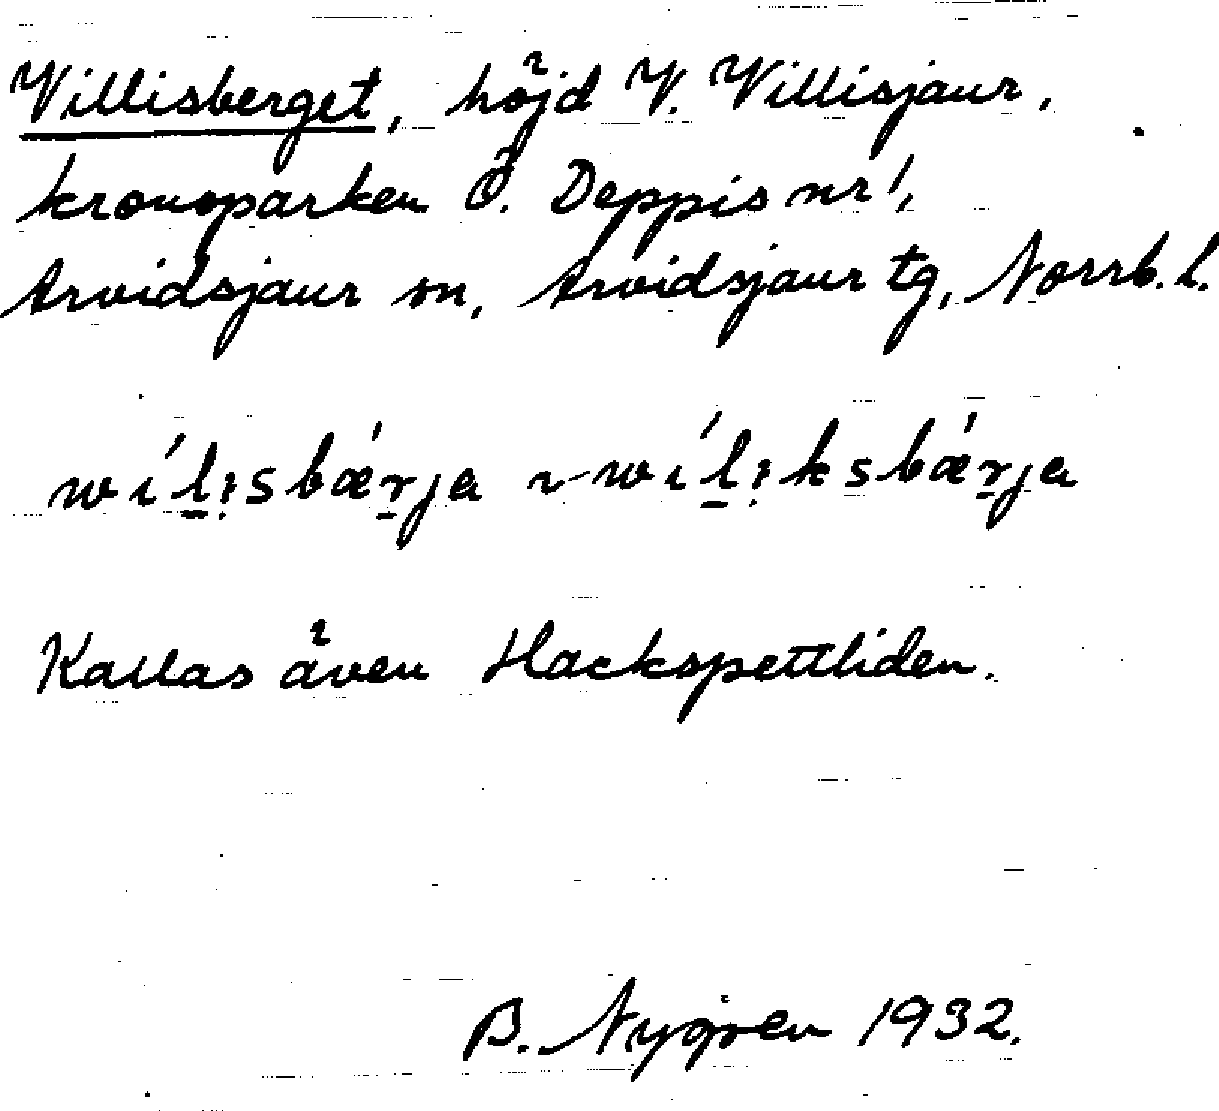 Villisberget, höjd V. Villisjaur,
kronoparken Ö. Deppis nr 1,
Arvidsjaur sn, Arvidsjaur tg, Norrb. l.
wíl̠ı̣sbǽr̠ja ~ wíl̠ı̣ksbǽr̠ja
Kallas även Hackspettliden.
B. Nygren 1932.